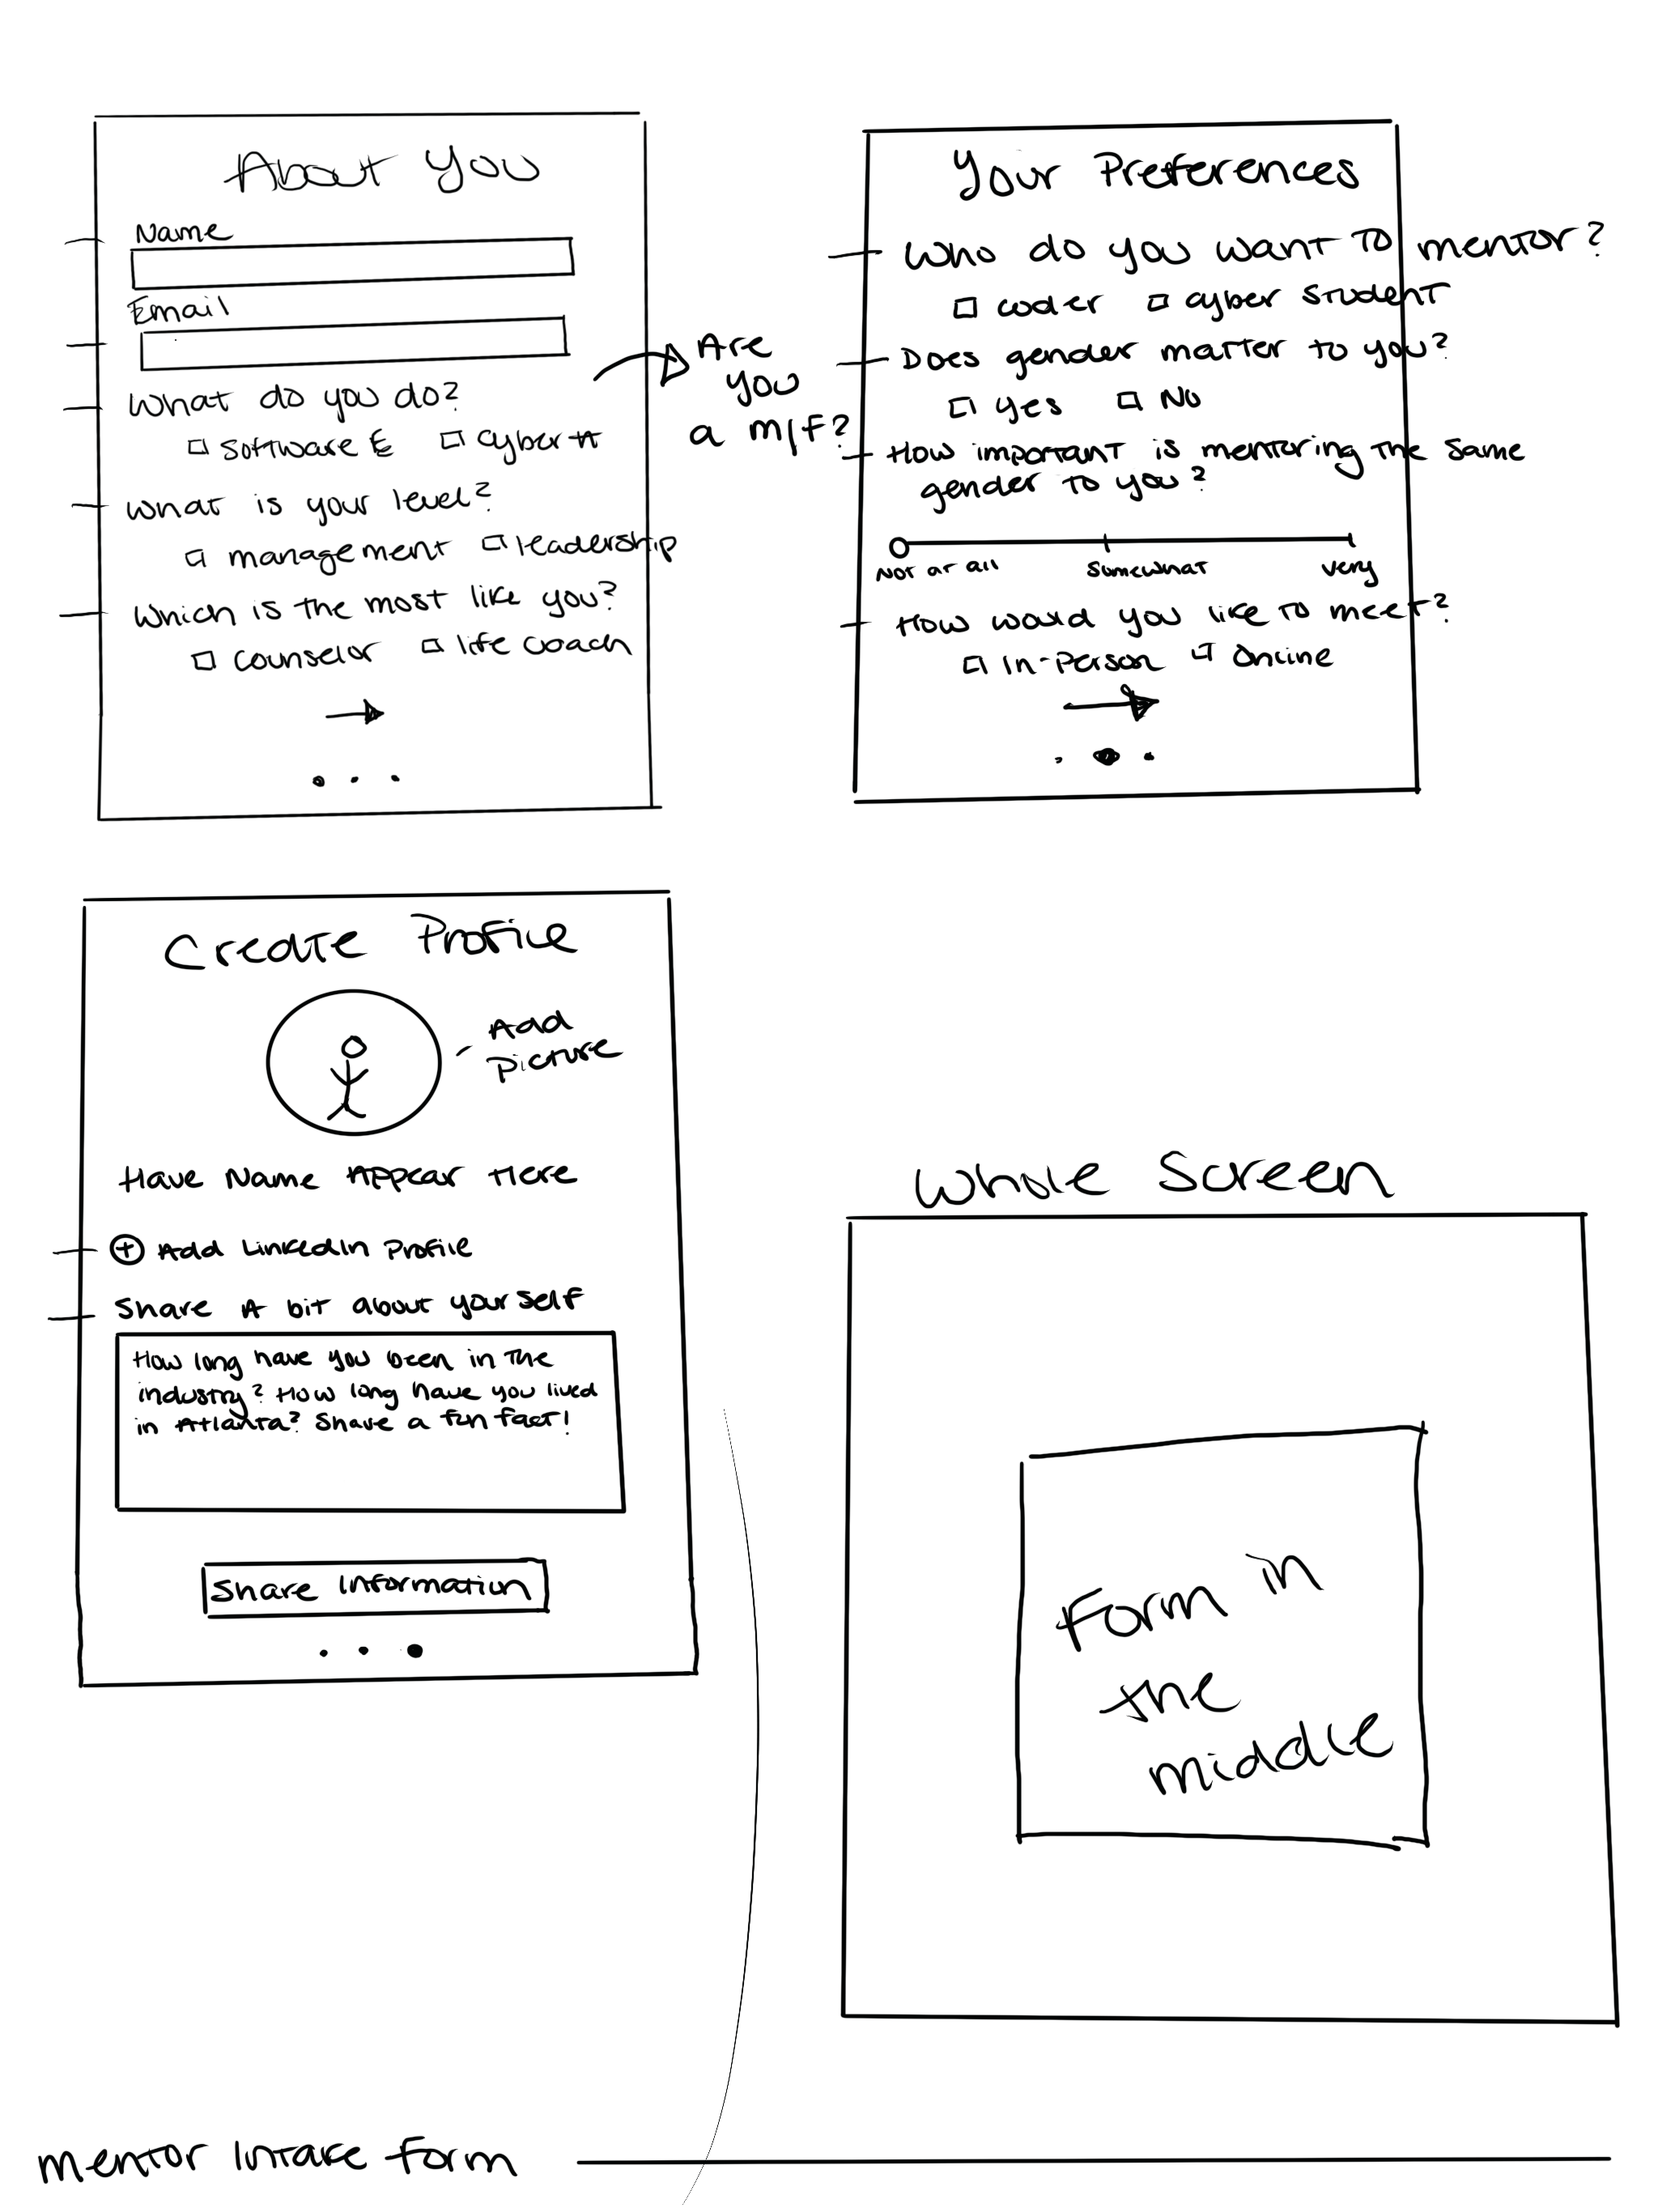 About You
Name
Email
What do you do?
Software E Cyber A
What is your level?
management leadership
Which is the most like you?
Counselor life coach
Are
you
a m/f?
Your Preferences
Who do you want to mentor?
coder cyber student
Does gender matter to you?
Yes No
How important is mentoring the same
gender to you?
Not at all Somewhat very
How would you like to meet?
In-Person Online
Create Profile
Add
picture
Have Name Appear Here
+ Add LinkedIn Profile
Share A bit about yourself
How long have you been in the
industry? How long have you lived
in Atlanta? Share a fun fact!
Share Information
Whole Screen
Form in
the
middle
Mentor Intake Form